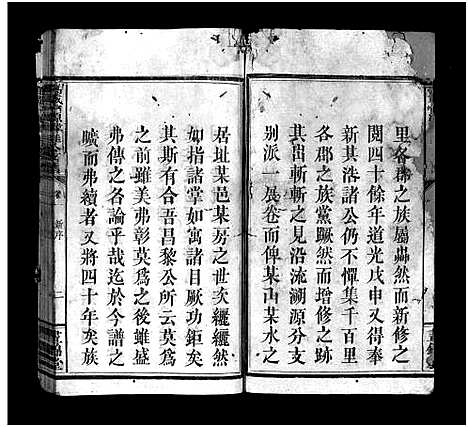 里各郡之族屬靐然而新修之
閱四十餘年道光戊申又得奉
新其涉諸公仍不憚集千百里
各郡之族黨蹶然而增修之跡
其出斬斬之見沿流溯源分支
別派一展卷而俾某山某水之
居址某邑某房之世次纚纚然
如指諸掌如寓諸目厥功鉅矣
其斯有合吾昌黎公所云莫為
之前雖美弗彰莫為之後雖盛
弗傳之名論乎哉迄於今譜之
曠而弗續者又將四十年矣族
新序
二